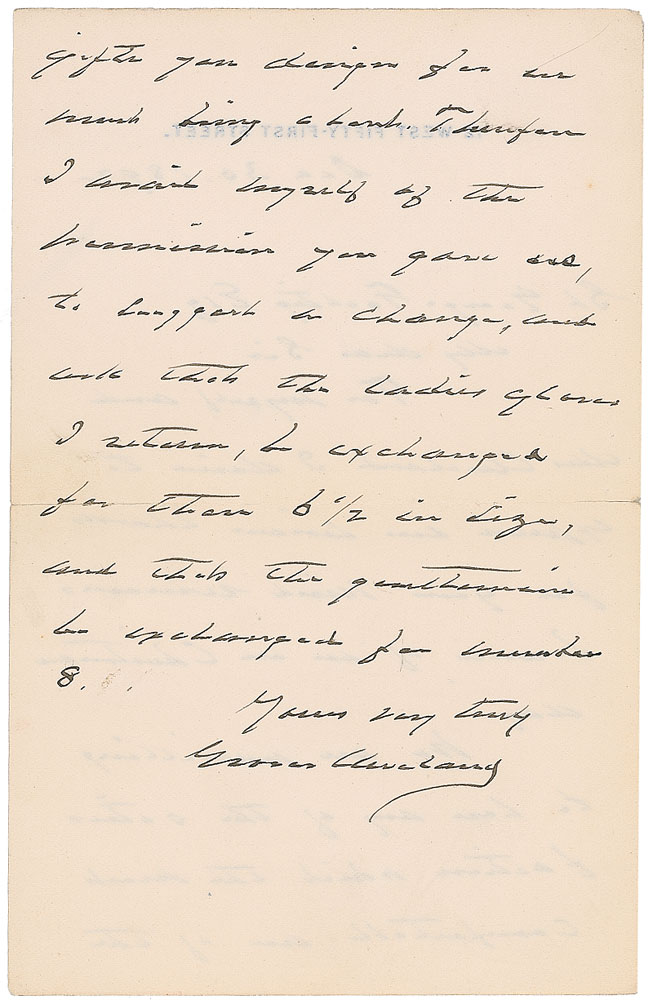 gifts you design for us
much being a bank. Therefore
I avail myself of the
permission you gave me,
to suggest a change, and
ask that the ladies gloves
I return, be exchanged
for them 6 1/2 in size,
and that the gentlemans
be exchanged for number
8.
Yours very truly
Grover Cleveland
WEST FIFTY-FIRST STREET.